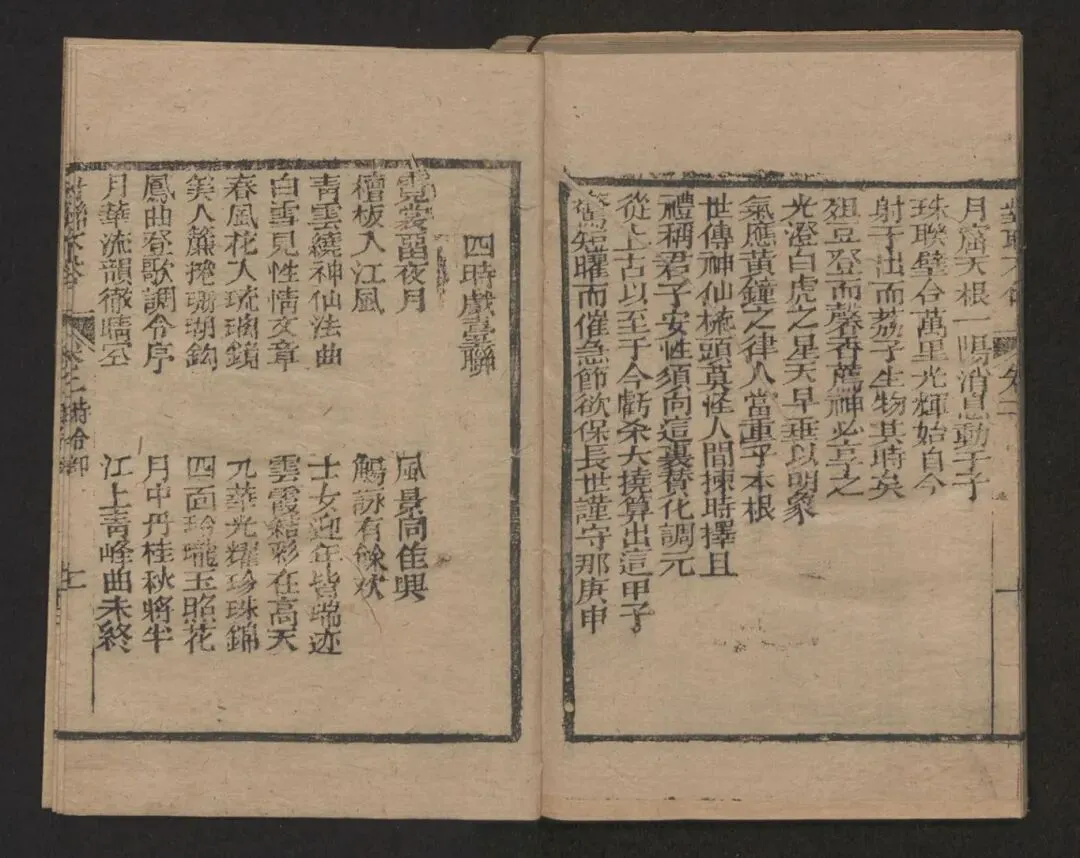 月窟天根一陽消息動于子
珠聯璧合萬里光輝始自今
射于出而荔子生物其時矣
俎豆登而馨香薦神必享之
光澄白虎之星天早垂以明象
氣應黃鐘之律人當重乎本根
世傳神仙梳頭莫怪人間揀時擇且
禮稱君子安性須向這裏贊化調元
從上古以至于今虧杀大撓算出這甲子
驚短曜而催急節欲保長世謹守那庚申
十
四時戲臺聯
霓裳留夜月 風景同佳興
檀板入江風 觴詠有餘欢
青雲繞神仙法曲 士女迎年皆瑞迹
白雪見性情文章 雲霞結彩在高天
春風花入琉璃鏡 九華光耀珍珠錦
美人簾捲珊瑚鈎 四面玲瓏玉照花
鳳曲登歌調令序 月中丹桂秋將半
月華流韻徹晴空 江上青峰曲未終
卷二 時令部